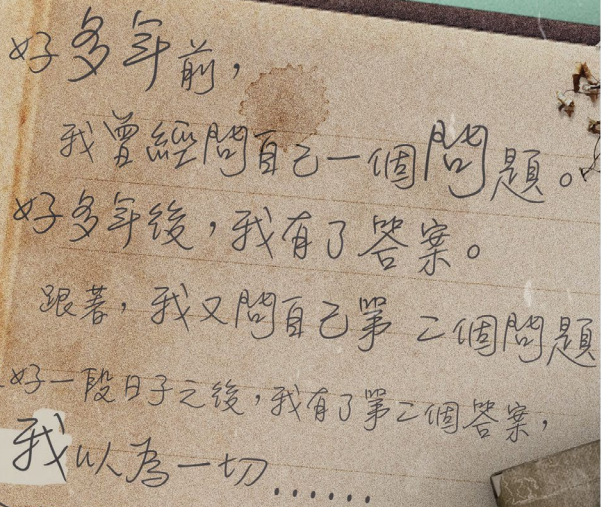 好多年前，
我曾經問自己一個問題。
好多年後，我有了答案。
跟著，我又問自己第二個問題
好一段日子之後，我有了第二個答案，
我以為一切……